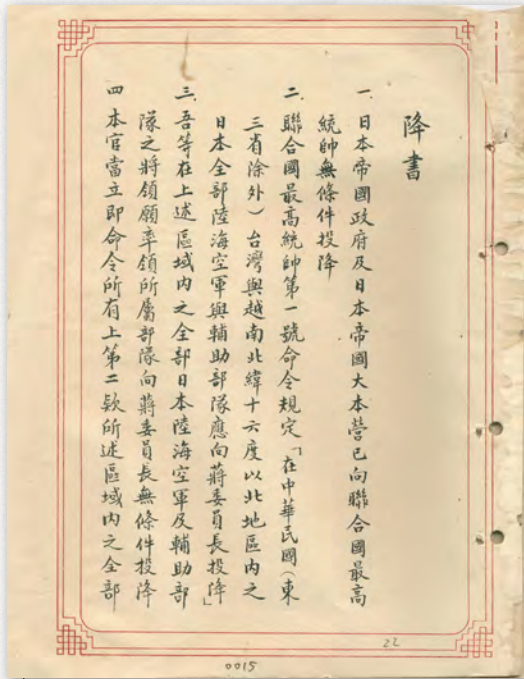 降書
一、日本帝國政府及日本帝國大本營已向聯合國最高
統帥無條件投降
二、聯合國最高統帥第一號命令規定「在中華民國(東
三省除外)台灣與越南北緯十六度以北地區內之
日本全部陸海空軍與輔助部隊應向蔣委員長投降」
三、吾等在上述區域內之全部日本陸海空軍及輔助部
隊之將領願率領所屬部隊向蔣委員長無條件投降
四 本官當立即命令所有上第二欵所述區域內之全部
22
0015